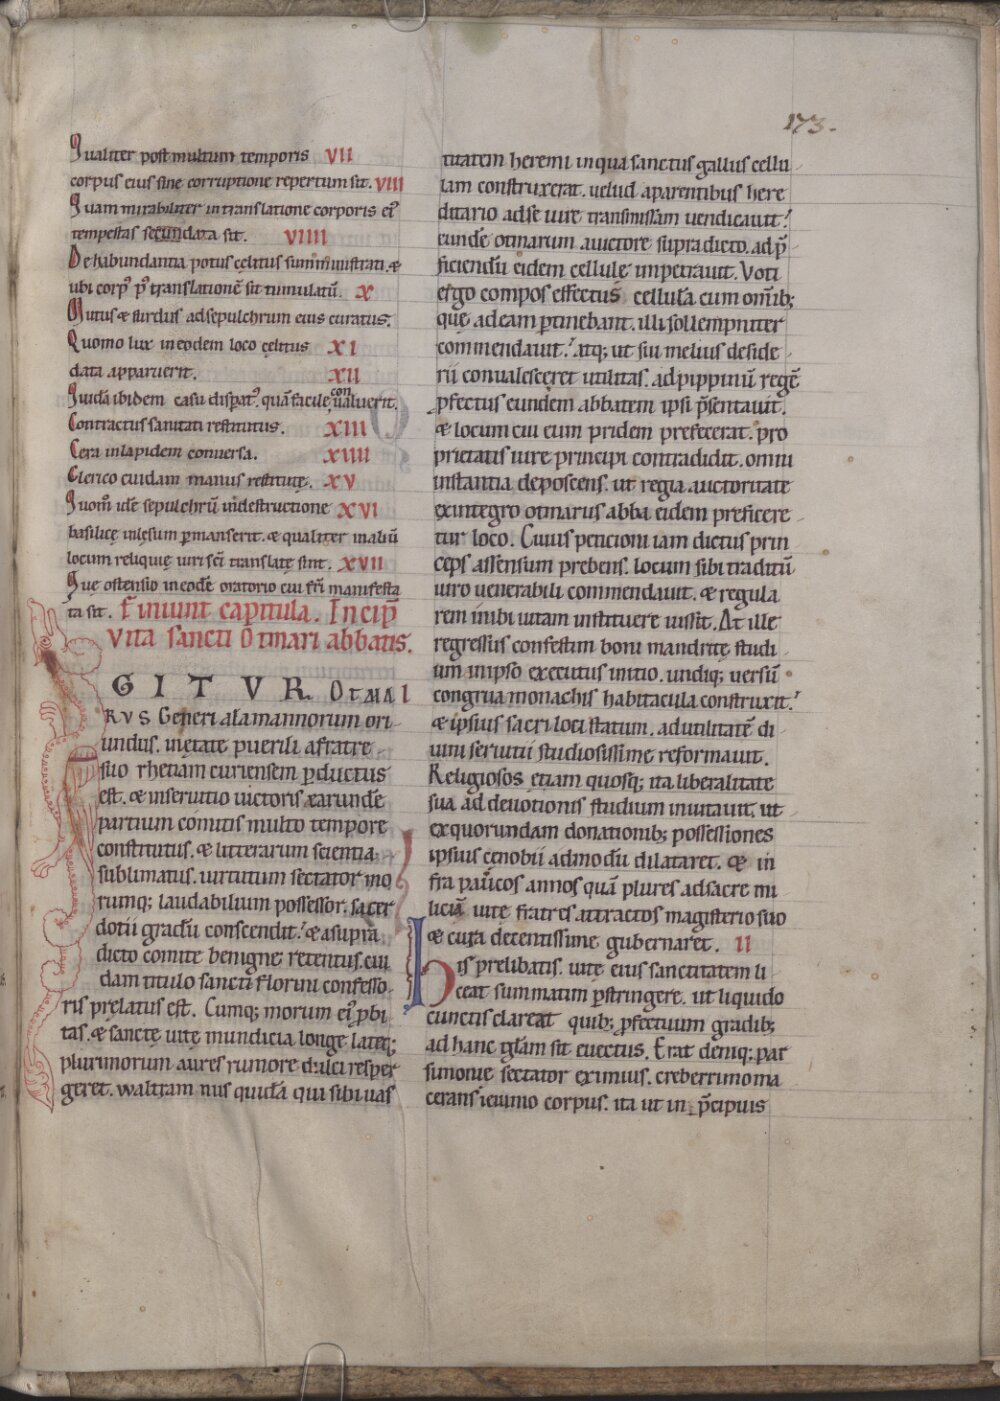 173.
Qualiter post multum temporis VII
corpus eius sine corruptione repertum sit. VIII
Quam mirabiliter in translatione corporis eiꝰ
tempestas secundata sit. VIIII
De habundantia potus cęlitus sumministrati. &
ubi corpꝰ pꝰ translationē sit tumulatū. X
Mutus & surdus ad sepulchrum eius curatus.
Quomo lux in eodem loco cęlitus XI
data apparuerit. XII
Quidā ibidem casu disꝑatꝰ. quā facile conualuerit.
Contractus sanitati restitutus. XIII
Cera in lapidem conuersa. XIIII
Clerico cuidam manus restitutę. XV
Quom̄ idē sepulchrū in destructione XVI
basilicę inlęsum ꝑmanserit. & qualiter in aliū
locum reliquię uiri sc̄i translatę sint. XVII
Quę ostensio in eodē oratorio cui fr̄i manifesta
ta sit. Finiunt capitula. Incip̄
Vita sancti Otmari abbatis.
GITVR OTMA
RVS Generi alamannorum ori
undus. in ętate puerili a fratre
suo rhetiam curiensem ꝑductus
est. & in seruitio uictoris earundē
partium comitis multo tempore
constitutus. & litterarum scientia
sublimatus. uirtutum sectator mo
rumq; laudabilium possessor. sacer
dotii gradū conscendit. & a supra
dicto comite benigne retentus. cui
dam titulo sancti Florini confesso
ris pręlatus est. Cumq; morum eiꝰ ꝓbi
tas. & sanctę uitę mundicia longe lateq;
plurimorum aures rumore dulci resꝑger
geret. waltram nus quidā qui sibi uas
titatem heremi in qua sanctus gallus cellu
lam construxerat. uelud a parentibus here
ditario ad se iure transmissam uendicauit.
eundē otmarum auctore supradicto. ad p̄
ficiendū eidem cellule impetrauit. Voti
ergo compos effectus cellulā cum om̄ib;
quę ad eam ꝑtinebant. illi sollempniter
commendauit. atq; ut sui melius deside
rii conualesceret utilitas. ad pippinū regē
ꝓfectus eundem abbatem ipsi p̄sentauit.
& locum cui eum pridem prefecerat. pro
prietatis iure principi contradidit. omni
instantia deposcens. ut regia auctoritate
ex integro otmarus abba eidem preficere
tur loco. Cuius peticioni iam dictus prin
ceps assensum prebens. locum sibi traditū
uiro uenerabili commendauit. & regula
rem inibi uitam instituere iussit. At ille
regressus confestim boni mandritę studi
um in ipso executus initio. undiq; uersū
congrua monachis habitacula construxit.
& ipsius sacri loci statum. ad utilitatē di
uini seruitii studiosissime reformauit.
Religiosos etiam quosq; ita liberalitate
sua ad deuotionis studium inuitauit. ut
ex quorundam donationib; possessiones
ipsius cenobii admodū dilataret. & in
fra paucos annos quā plures ad sacrę mi
liciā uitę fratres attractos magisterio suo
& cura decentissime gubernaret. II
His prelibatis. uitę eius sanctitatem li
ceat summatim ꝑstringere. ut liquido
cunctis clareat quib; ꝓfectuum gradib;
ad hanc gl̄am sit euectus. Erat deniq; par
simonie sectator eximius. creberrimo ma
cerans ieiunio corpus. ita ut in p̄cipuis